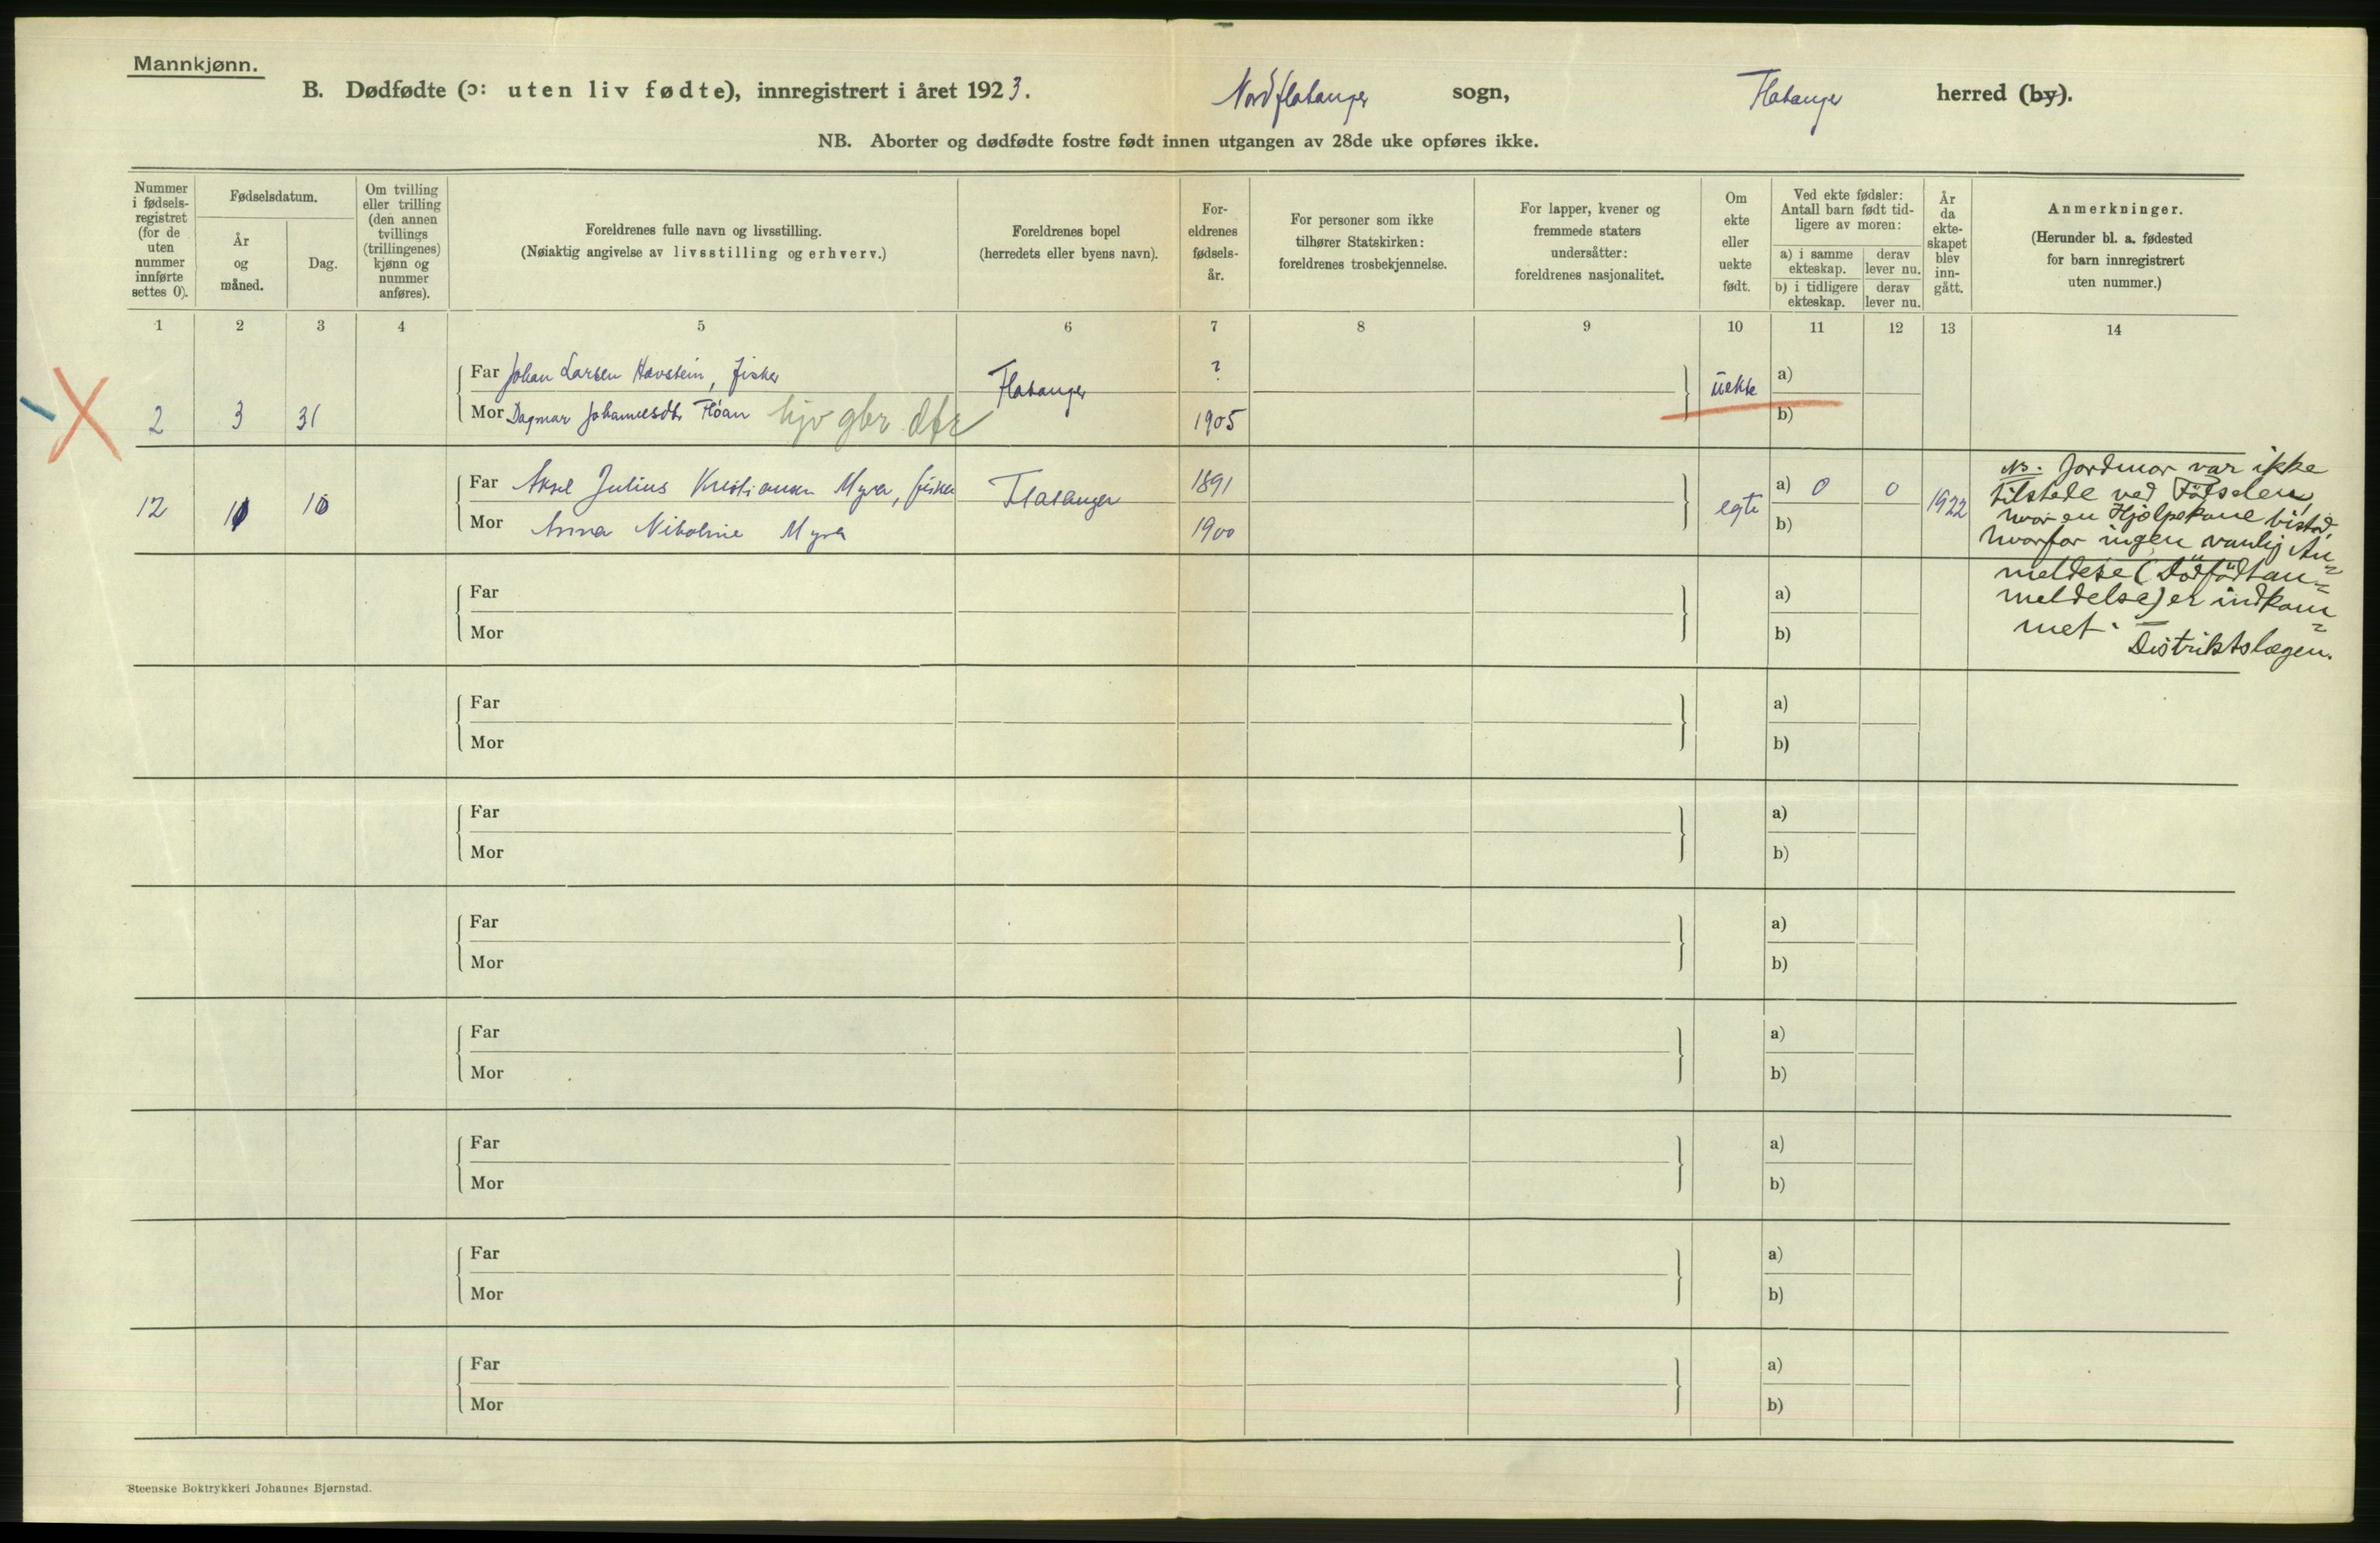 Mannkjønn.
B. Dødfødte (ɔ: uten liv fødte), innregistrert i året 1923. Nordflatanger sogn, Flatanger herred (by).
NB. Aborter og dødfødte fostre født innen utgangen av 28de uke opføres ikke.
Nummer i fødsels-registret (for de uten nummer innførte settes 0).
Fødselsdatum.
År og måned.
Dag.
Om tvilling eller trilling (den annen tvillings (trillingenes) kjønn og nummer anføres).
Foreldrenes fulle navn og livsstilling.
(Nøiaktig angivelse av livsstilling og erhverv.)
Foreldrenes bopel
(herredets eller byens navn).
For-eldrenes fødsels-år.
For personer som ikke tilhører Statskirken: foreldrenes trosbekjennelse.
For lapper, kvener og fremmede staters undersåtter: foreldrenes nasjonalitet.
Om ekte eller uekte født.
Ved ekte fødsler: Antall barn født tid-ligere av moren:
a) i samme ekteskap.
derav lever nu.
b) i tidligere ekteskap.
derav lever nu.
År da ekte-skapet blev inn-gått.
Anmerkninger.
(Herunder bl. a. fødested for barn innregistrert uten nummer.)
1 2 3 4 5 6 7 8 9 10 11 12 13 14
Far Johan Larsen Havstein, fisker ? a)
2 3 31 Mor Dagmar Johannesdtr Floan hjv gbr dtr Flatanger 1905 uekte b)
Far Aksel Julius Kristiansen Myra, fisker Flatanger 1891 a) 0 0
12 11 10 Mor Anna Nikoline Myra 1900 egte b) 1922
NB. Jordmor var ikke
tilstede ved Fødselen,
hvor en Hjelpekone bistod,
hvorfor ingen vanlig An=
meldese (Dødfødtan=
meldelse) er indkom=
met.
Distriktslægen.
Far a)
Mor b)
Far a)
Mor b)
Far a)
Mor b)
Far a)
Mor b)
Far a)
Mor b)
Far a)
Mor b)
Far a)
Mor b)
Far a)
Mor b)
Steenske Boktrykkeri Johannes Bjørnstad.